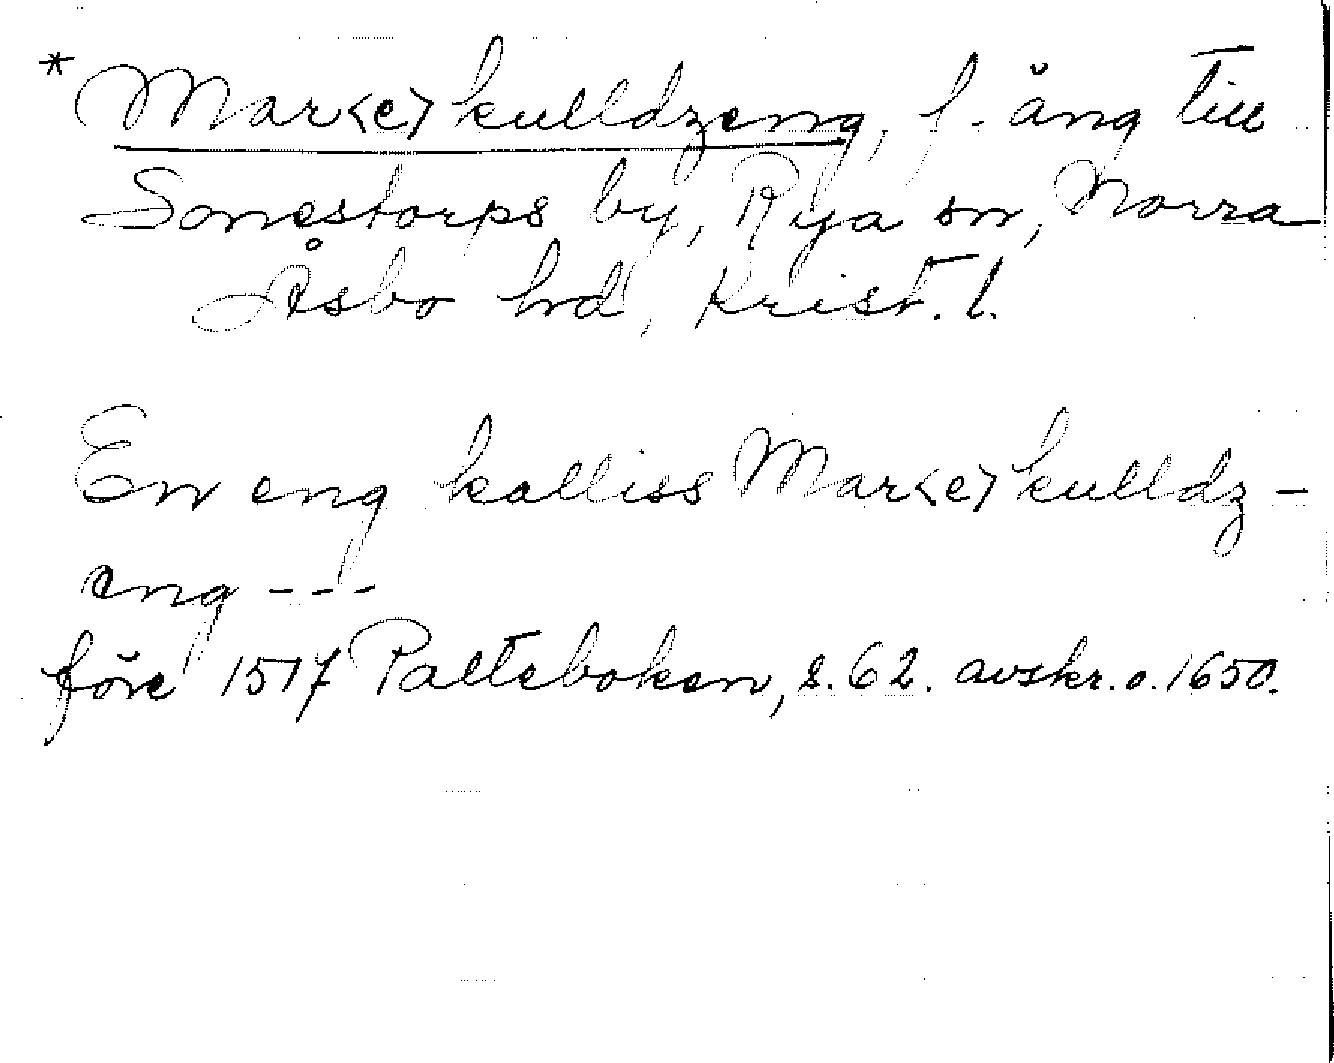 *Mar<e>kulldzeng, f. äng till
Sonestorps by, Rya sn, Norra
Åsbo hd, Krist. l.
En eng kalliss Mar<e>kulldz-
eng ---
före 1517 Palteboken, s. 62. avskr. o. 1650.